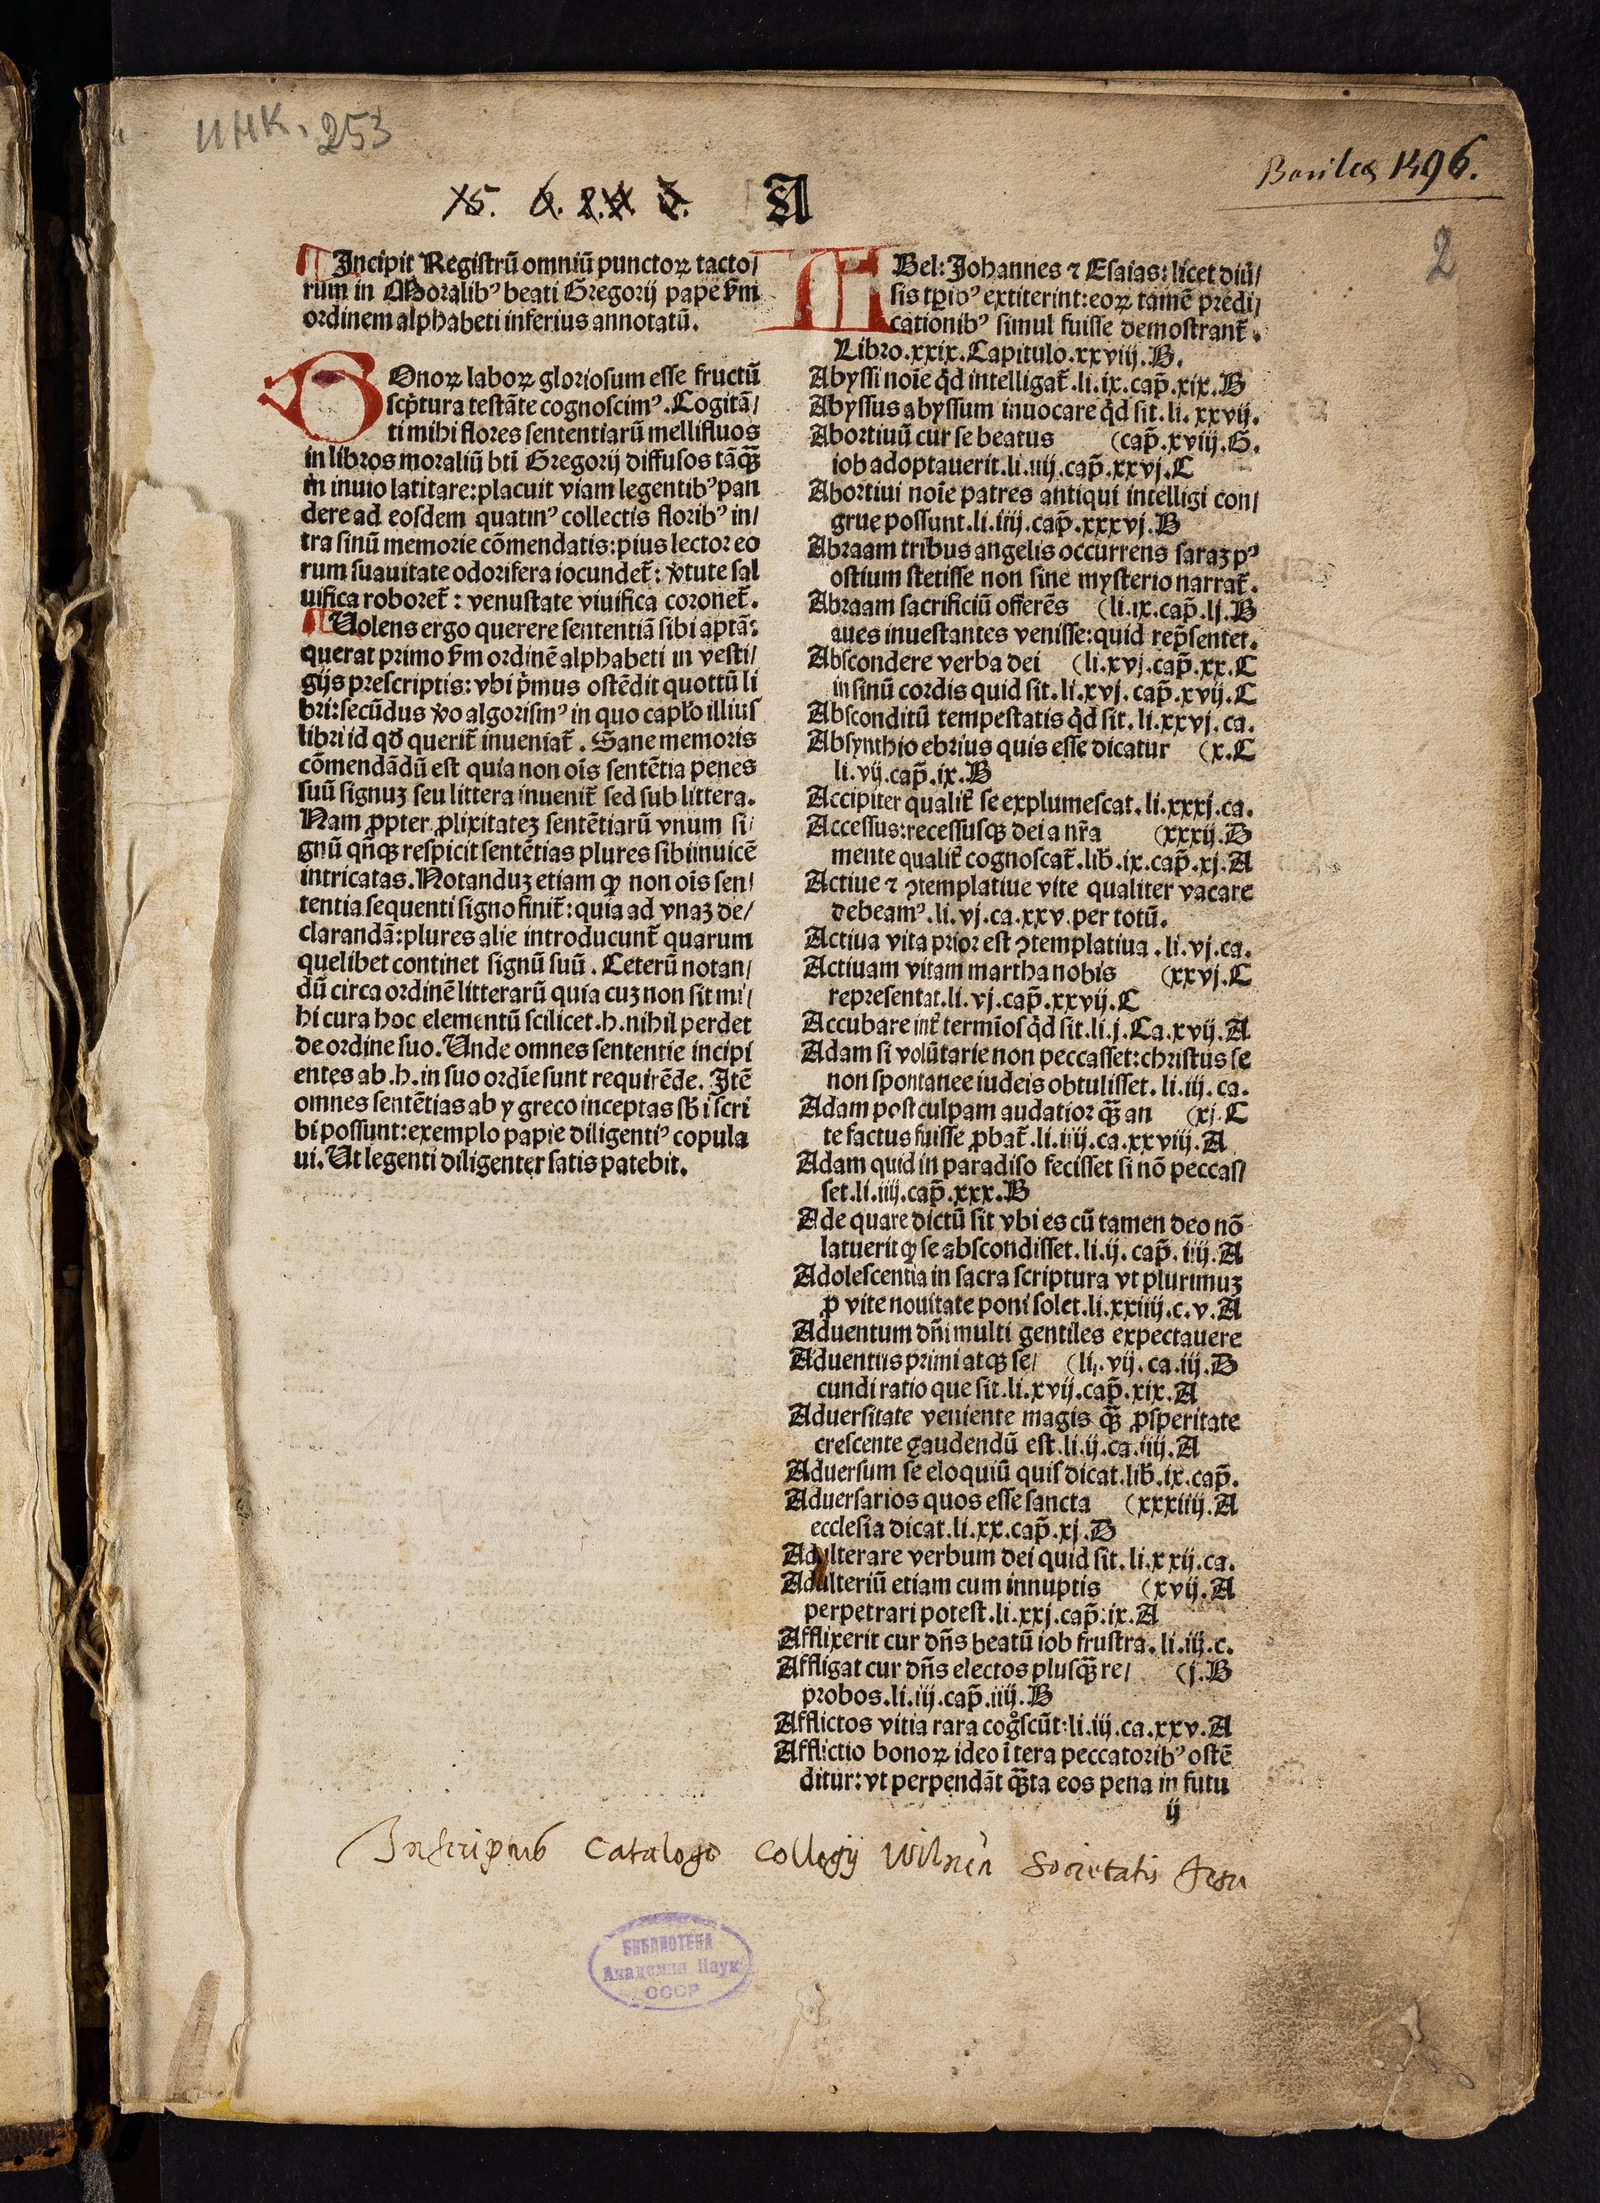 ИНК. 253
Basileȩ 1496.
2
A
Incipit Registrū omniū punctoꝝ tacto/
rum in Moralibꝰ beati Gregorij pape ẜm
ordinem alphabeti inferius annotatū.
BOnoꝝ laboꝝ gloriosum esse fructū
scp̄tura testāte cognoscimꝰ. Cogitā/
ti mihi flores sententiarū mellifluos
in libros moraliū bti Gregorij diffusos tāꝙ̄
in inuio latitare: placuit viam legentibꝰ pan
dere ad eosdem quatinꝰ collectis floribꝰ in/
tra sinū memorie cōmendatis: pius lector eo
rum suauitate odorifera iocundet᷑: v̓tute sal
uifica roboret᷑: venustate viuifica coronet᷑.
Uolens ergo querere sententiā sibi aptā:
querat primo ẜm ordinē alphabeti in vesti/
gijs prescriptis: vbi p̓mus ostēdit quottū li
bri: secūdus v̓o algorismꝰ in quo cap̄lo illius
libri id qd̓ querit᷑ inueniat᷑. Sane memoris
cōmendādū est quia non oīs sentētia penes
suū signuꝫ seu littera inuenit᷑ sed sub littera.
Nam ꝓpter ꝓlixitateꝫ sentētiarū vnum si/
gnū qn̄qꝫ respicit sentētias plures sibiinuicē
intricatas. Notanduꝫ etiam ꝙ non oīs sen/
tentia sequenti signo finit᷑: quia ad vnaꝫ de/
clarandā: plures alie introducunt᷑ quarum
quelibet continet signū suū. Ceterū notan/
dū circa ordinē litterarū quia cuꝫ non sit mi/
hi cura hoc elementū scilicet .h. nihil perdet
de ordine suo. Unde omnes sententie incipi
entes ab .h. in suo ordīe sunt requirēde. Itē
omnes sentētias ab y greco inceptas sb̓ i scri
bi possunt: exemplo papie diligentiꝰ copula
ui. Ut legenti diligenter satis patebit.
ABel: Johannes ⁊ Esaias: licet diū/
sis tp̄ibꝰ extiterint: eoꝝ tamē predi/
cationibꝰ simul fuisse demostrant᷑.
Libro.xxix.Capitulo.xxviij.B.
Abyssi noīe qd̓ intelligat᷑.li.ix.cap̄.xix.B
Abyssus abyssum inuocare qd̓ sit.li.xxvij.
Abortiuū cur se beatus (cap̄.xviij.G.
iob adoptauerit.li.iiij.cap̄.xxvj.C
Abortiui noīe patres antiqui intelligi con/
grue possunt.li.iiij.cap̄.xxxvj.B
Abraam tribus angelis occurrens saraꝫ pꝰ
ostium stetisse non sine mysterio narrat᷑.
Abraam sacrificiū offerēs (li.ix.cap̄.lj.B
aues inuestantes venisse: quid rep̄sentet.
Abscondere verba dei (li.xvj.cap̄.xx.C
in sinū cordis quid sit.li.xvj.cap̄.xvij.C
Absconditū tempestatis qd̓ sit.li.xxvj.ca.
Absynthio ebrius quis esse dicatur (x.C
li.vij.cap̄.ix.B
Accipiter qualit᷑ se explumescat.li.xxxj.ca.
Accessus: recessusqꝫ dei a nr̄a (xxxij.D
mente qualit᷑ cognoscat᷑.lib̓.ix.cap̄.xj.A
Actiue ⁊ ꝯtemplatiue vite qualiter vacare
debeamꝰ.li.vj.ca.xxv.per totū.
Actiua vita prior est ꝯtemplatiua.li.vj.ca.
Actiuam vitam martha nobis (xxvj.C
representat.li.vj.cap̄.xxvij.C
Accubare int᷑ termīos qd̓ sit.li.j.Ca.xvij.A
Adam si volūtarie non peccasset: christus se
non spontanee iudeis obtulisset.li.iij.ca.
Adam post culpam audatior ꝙ̄ an (xj.C
te factus fuisse ꝓbat᷑.li.iiij.ca.xxviij.A
Adam quid in paradiso fecisset si nō peccas/
set.li.iiij.cap̄.xxx.B
Ade quare dictū sit vbi es cū tamen deo nō
latuerit ꝙ se abscondisset.li.ij.cap̄.iiij.A
Adolescentia in sacra scriptura vt plurimuꝫ
ꝓ vite nouitate poni solet.li.xxiiij.c.v.A
Aduentum dn̄i multi gentiles expectauere
Aduentus primi atqꝫ se/ (li.vij.ca.iij.D
cundi ratio que sit.li.xvij.cap̄.xix.A
Aduersitate veniente magis ꝙ̄ ꝓsperitate
crescente gaudendū est.li.ij.ca.iiij.A
Aduersum se eloquiū quis dicat.lib̓.ix.cap̄.
Aduersarios quos esse sancta (xxxiiij.A
ecclesia dicat.li.xx.cap̄.xj.D
Adulterare verbum dei quid sit.li.xxij.ca.
Adulteriū etiam cum innuptis (xvij.A
perpetrari potest.li.xxj.cap̄.ix.A
Afflixerit cur dn̄s beatū iob frustra.li.iij.c.
Affligat cur dn̄s electos plusꝙ̄ re/ (j.B
probos.li.iij.cap̄.iiij.B
Afflictos vitia rara cog̊scūt: li.iij.ca.xxv.A
Afflictio bonoꝝ ideo ī tera peccatoribꝰ ostē
ditur: vt perpendāt ꝙ̄ta eos pena in futu
ij
Inscriptus Catalogo Collegij Wilnen̄ Societatis Jesu
БИБЛИОТЕКА
Академии Наук
СССР